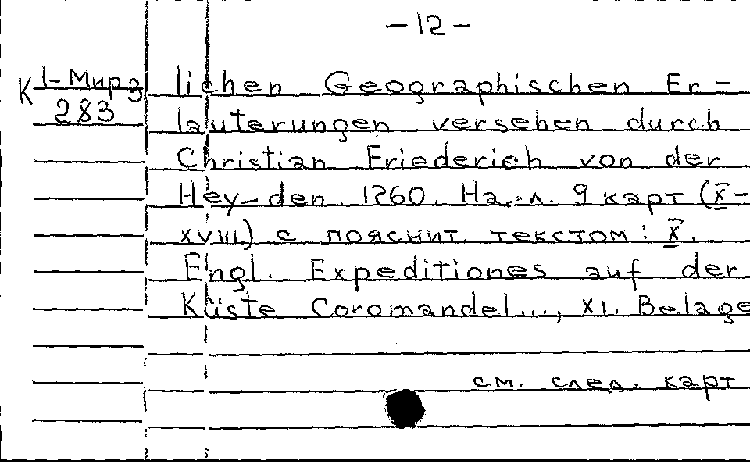 -12-
К 1-Мир 3
283
lichen Geographischen Er-
läuterungen versehen durch
Christian Friederich von der
Hey-den 1760. На л. 9 карт (X-
XVIII) с пояснит. текстом: X.
Engl. Expeditiones auf der
Küste Coromandel..., XI. Belage
см. след. карт